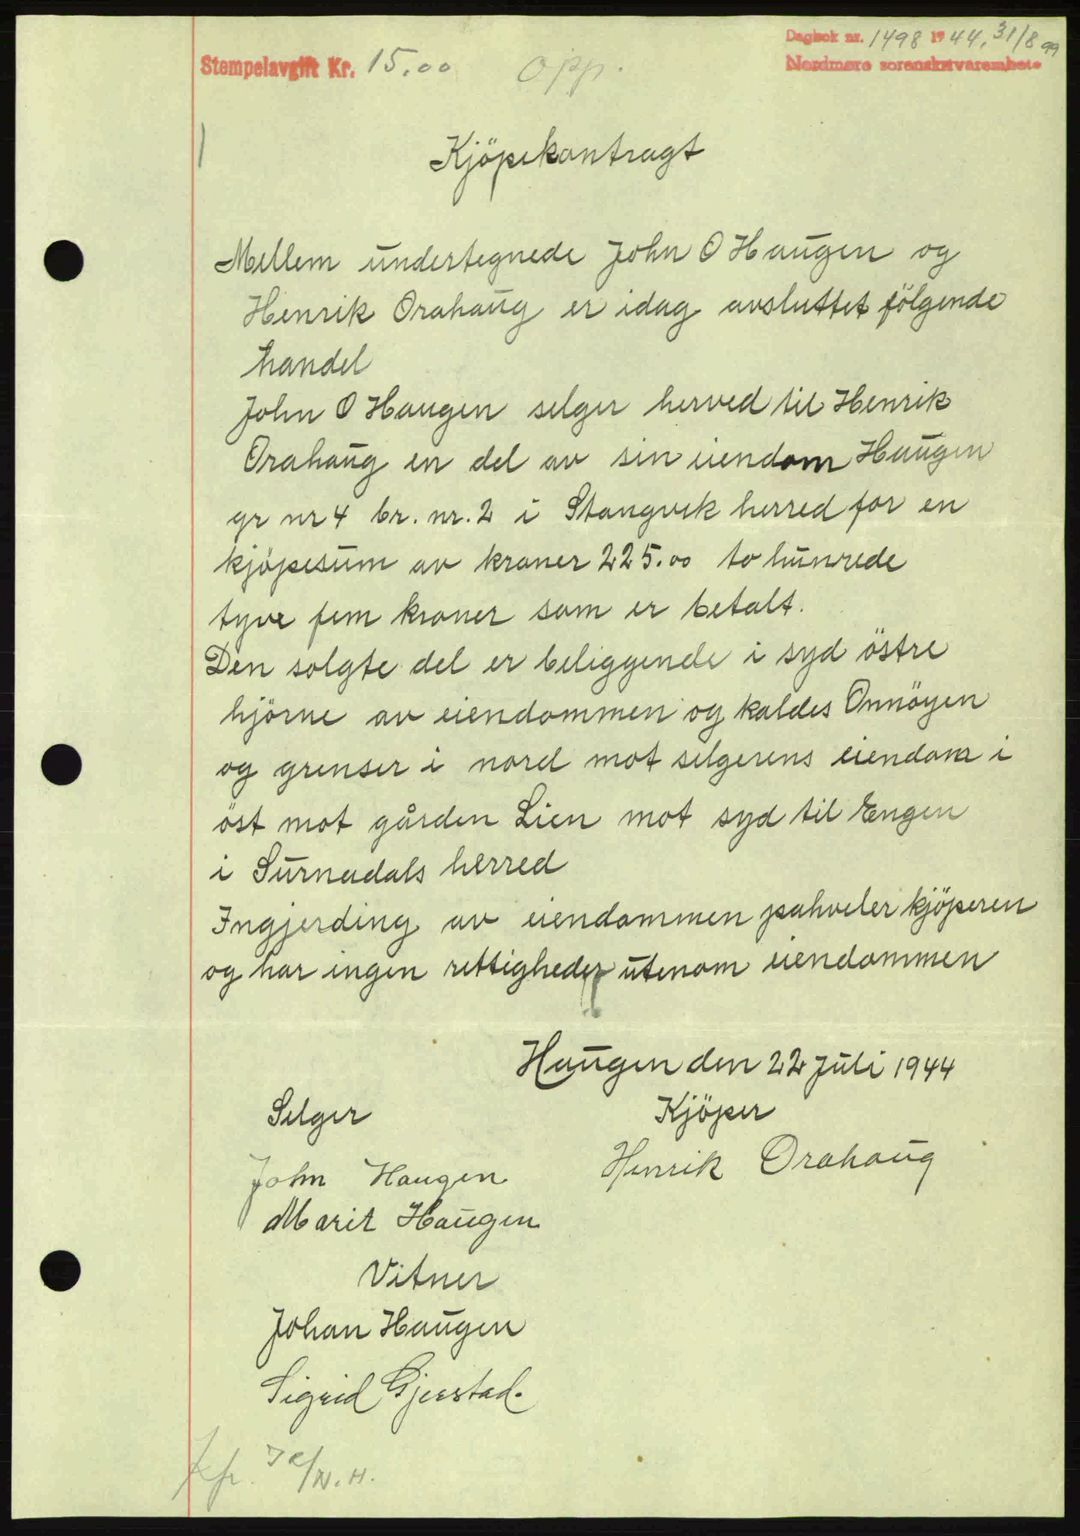 Dagbok nr. 1498 1944, 31/8 99
Stempelavgift Kr. 15.00 opp.
Nordmøre sorenskriverembete
Kjöpekontragt
Mellem undertegnede John O Haugen og
Henrik Orahaug er idag avsluttet fölgende
handel
John O Haugen selger herved til Henrik
Orahaug en del av sin eiendom Haugen
gr nr 4 br. nr. 2 i Stangvik herred for en
kjöpesum av kroner 225.00 to hunrede
tyve fem kroner som er betalt.
Den solgte del er beliggende i syd östre
hjörne av eiendommen og kaldes Onnöyen
og grenser i nord mot selgerens eiendom i
öst mot gården Lien mot syd til Engen
i Surnadals herred
Ingjerding av eiendommen pahveler kjöperen
og har ingen rettigheder utenom eiendommen
Haugen den 22 Juli 1944
Selger Kjöper
John Haugen Henrik Orahaug
Marit Haugen
Vitner
Johan Haugen
Sigrid Gjerstad.